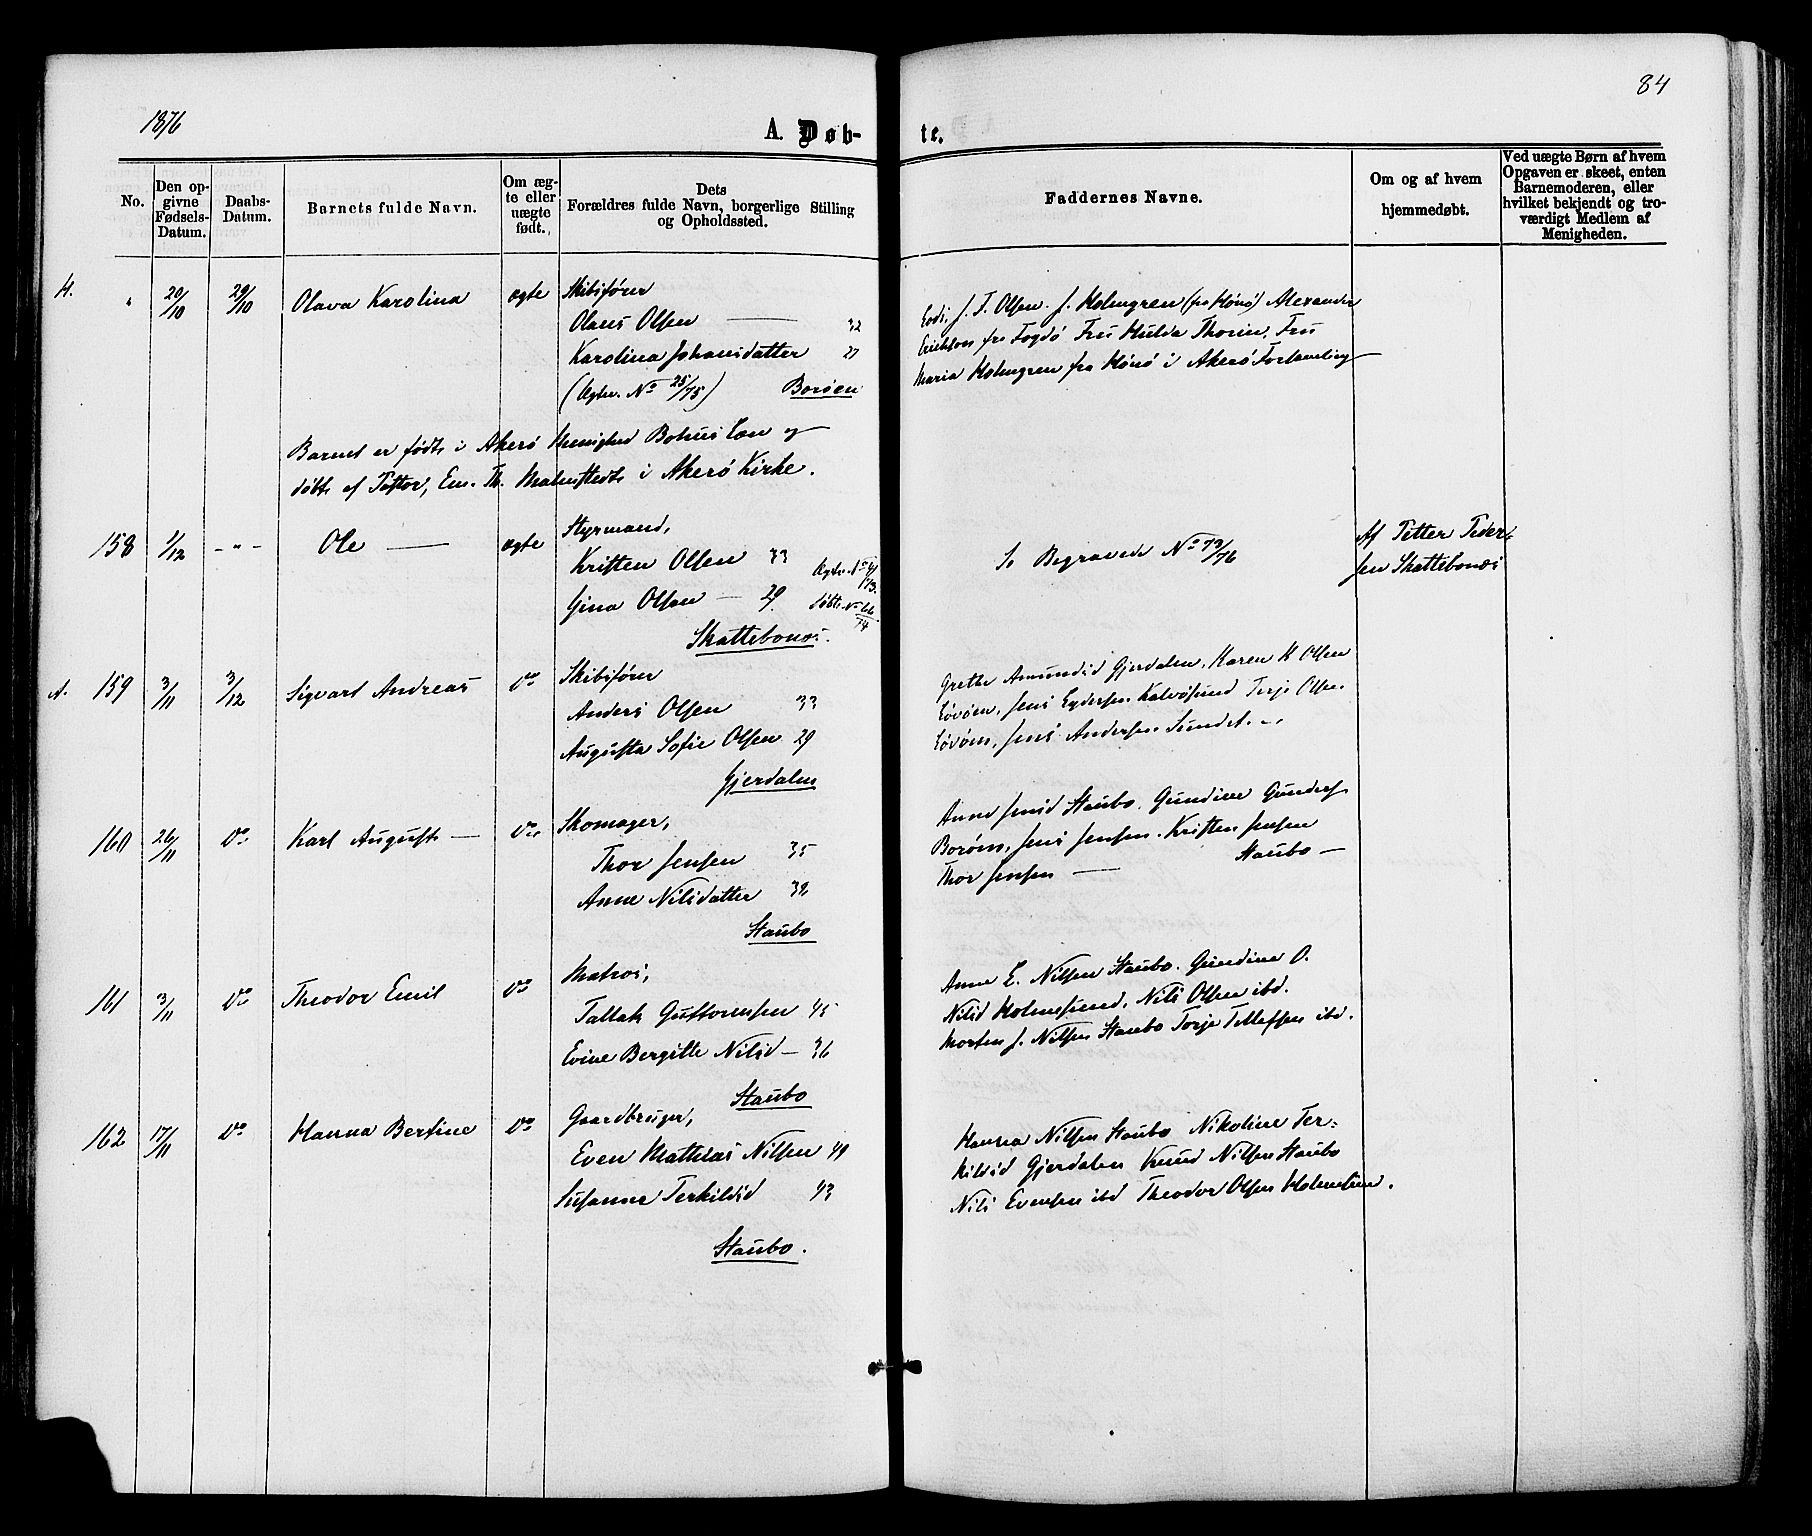 84
1876
A. Døb-
te.
No.
Den op-
givne
Fødsels-
Datum.
Daabs-
Datum.
Barnets fulde Navn.
Om æg-
te eller
uægte
født.
Dets
Forældres fulde Navn, borgerlige Stilling
og Opholdssted.
Faddernes Navne.
Om og af hvem
hjemmedøbt.
Ved uægte Børn af hvem
Opgaven er skeet, enten
Barnemoderen, eller
hvilket bekjendt og tro-
værdigt Medlem af
Menigheden.
20/10 29/10 Olava Karolina ægte Skibsfører
Olaus Olsen — 32
Karolina Johansdatter 27
(Ægtev. No 25/75) Borøen
J. T. Olsen. J. Holmgren (fra Hönö) Alexander
Erickson fra Fogdö Fru Hulda Thorin, Fru
Maria Holmgren fra Hönö i Akerö Forsamling
Barnet er født i Akerö Menighed Bohus Læn og
døbt af Pastor, Em. Th. Malmstedt i Akerö Kirke.
158 1/12 -"- Ole — ægte Styrmand,
Kristen Olsen 33
Gina Olsen — 29.
Skattebonæs.
Døbte No 66/74
Se Begravede No 73/76
Af Petter Peder-
sen Skattebonæs
159 3/11 3/12 Sigvart Andreas do Skibsfører
Anders Olsen 33
Augusta Sofie Olsen 29
Gjerdalen
Grethe Amundsd Gjerdalen, Karen K Olsen
Løvøen, Jens Eydersen Kalvøsund Terje Olsen
Løvøen, Jens Andersen Sundet.
160 26/11 do Karl August — do Skomager,
Thor Jensen 35
Anne Nilsdatter 32
Staubo
Anne Jensd Staubo. Gundine Gunders
Borøen, Jens Jensen. Kristen Jensen
Thor Jensen — Staubo —
161 3/11 do Theodor Emil do Matros,
Tallak Guttormsen 45
Evine Bergitte Nilsd — 36
Staubo
Anne E. Nilsen Staubo. Gundine O.
Nilsd Holmsund, Nils Olsen ibd.
Morten J. Nilsen Staubo Terje Tellefsen ibd.
162 17/11 do Hanna Bertine do Gaardbruger,
Even Mathias Nilsen 49
Susanne Terkildsd 43
Staubo.
Hanna Nilsen Staubo Nikoline Ter-
kildsd Gjerdalen Knud Nilsen Staubo
Nils Evensen ibd Theodor Olsen Holmsund.